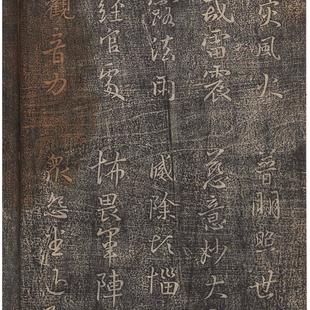 災風火 普明照世
戒雷震 慈意妙大
露法雨 滅除煩惱
經官處 怖畏軍陣
觀音力 衆怨悉退